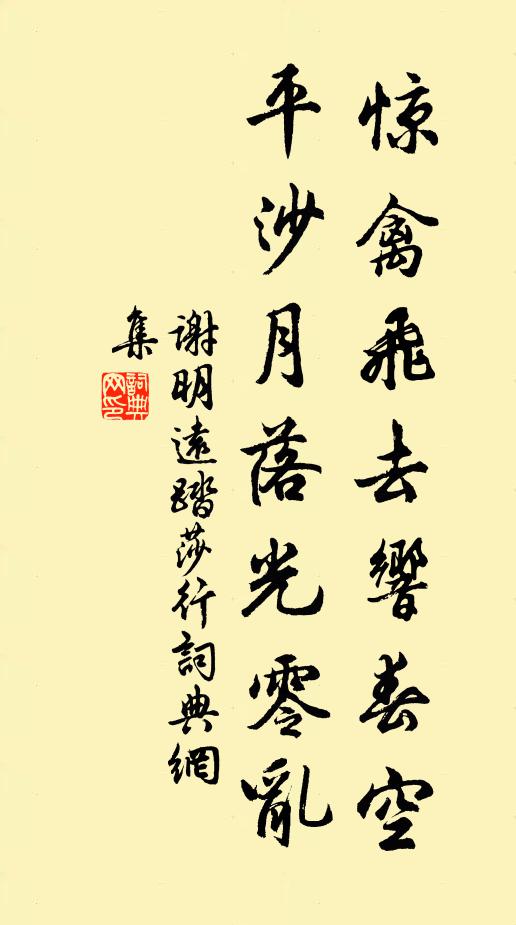 惊禽飛去響春空
平沙月落光零亂
謝明遠踏莎行詞典網
集
詞典
网印